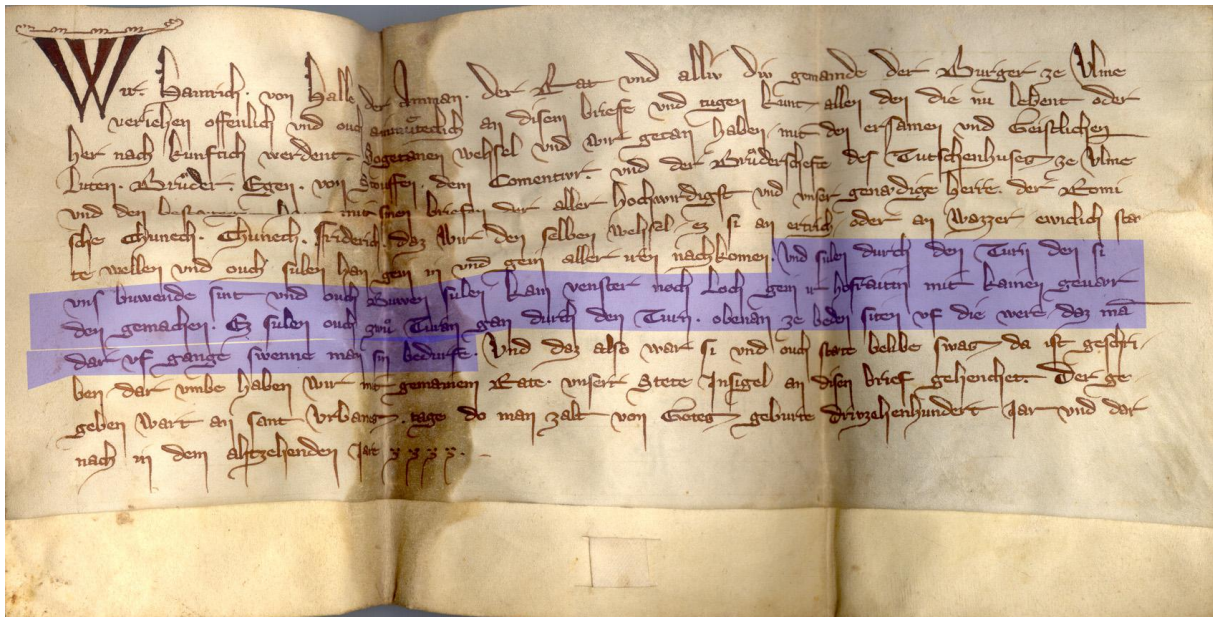 Wir. Hainrich. von Halle der Amman. Der Rat vnd alliv div gemainde der Burger ze Vlme
veriehen offenlich vnd ouch an disem briefe vnd tugen kunt allen den die nu lebent oder
her nach kunftich werdent. Sogetanen wehsel vnd wir getan haben mit den ersamen vnd Geistlichen
Luten. Brůder. Egen. von Stouffen. dem Comentivr. vnd der Brůderschefte des Tutschenhuses ze Vlme
vnd den mit sinen briefen der aller hochwirdigst vnd vnser genædige herre. der Romi
sche Chunech. Chunech. friderich. daz wir den selben wehsel ez si an ertrich oder an wazzer ewiclich sta
te wellen vnd ouch sulen han gein in vnd gein aller iren nachkomen. Vnd sulen durch den Turn den si
vns buwende sint vnd ouch Buwen sulen kain venster noch Loch gein ir hofraitin mit kainen geuar
den gemachen. Ez sulen ouch zwů Turan gan durch den Turn. obenan ze beden siten vf die were. daz mā
dar vf gange swenne man sin bedurfe. Vnd daz also war si vnd ouch state belibe swaz da ist geschri
ben dar vmbe haben wir mit gemainem Rate. vnsert Stete Insigel an disen brief gehenchet. Der ge
geben wart an sant Vrbans. tage do man zalt von Gotes geburte drivzehenhundert Jar vnd dar
nach in dem ahtzehenden Jar